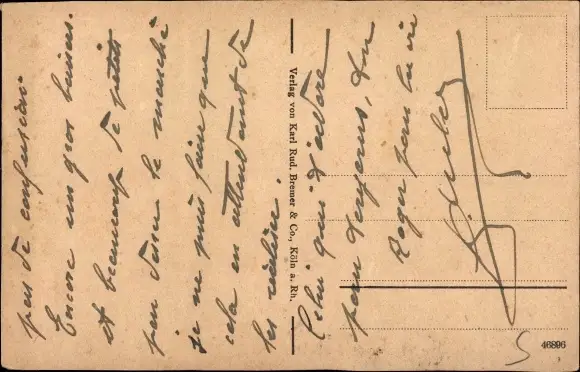 pas de confusion.
Encore un gros baiser.
et beaucoup de petits
par dessus le marché
je ne puis faire que
cela en attendant de
les réaliser.
Celui qui t'adore
pour toujours, ton
Roger pour la vie
Verlag von Karl Rud. Bremer & Co., Köln a. Rh.
46896
5